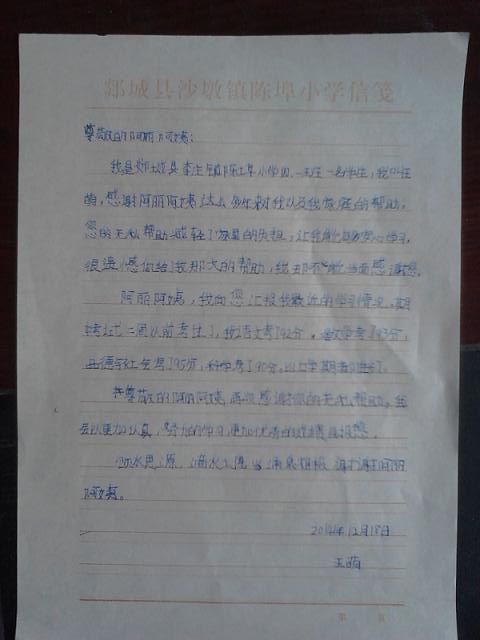 郯城县沙墩镇陈埠小学信笺
尊敬的阿丽阿姨：
我是郯城县 镇陈埠小学四 一班一名学生，我叫王
萌，感谢阿丽阿姨这么多年来对我以及我家庭的帮助，
您的无私帮助减轻了家里的负担，让我能 安心学习，
很遗憾您给我那大的帮助，我却不能当面感谢您。
阿丽阿姨，我向您汇报我最近的学习情况，期
二周以前考生了，我语文考了92分，数学考了93分，
品德与社会考了95分，科学考了90分，比上学期
尊敬的阿丽阿姨，再次感谢您的无私帮助，我
会以更加认真，努力的学习，更加优秀的成绩 您。
饮水思源，滴水之恩当涌泉相报，谢谢阿丽
阿姨。
12月18日
王萌
第 页